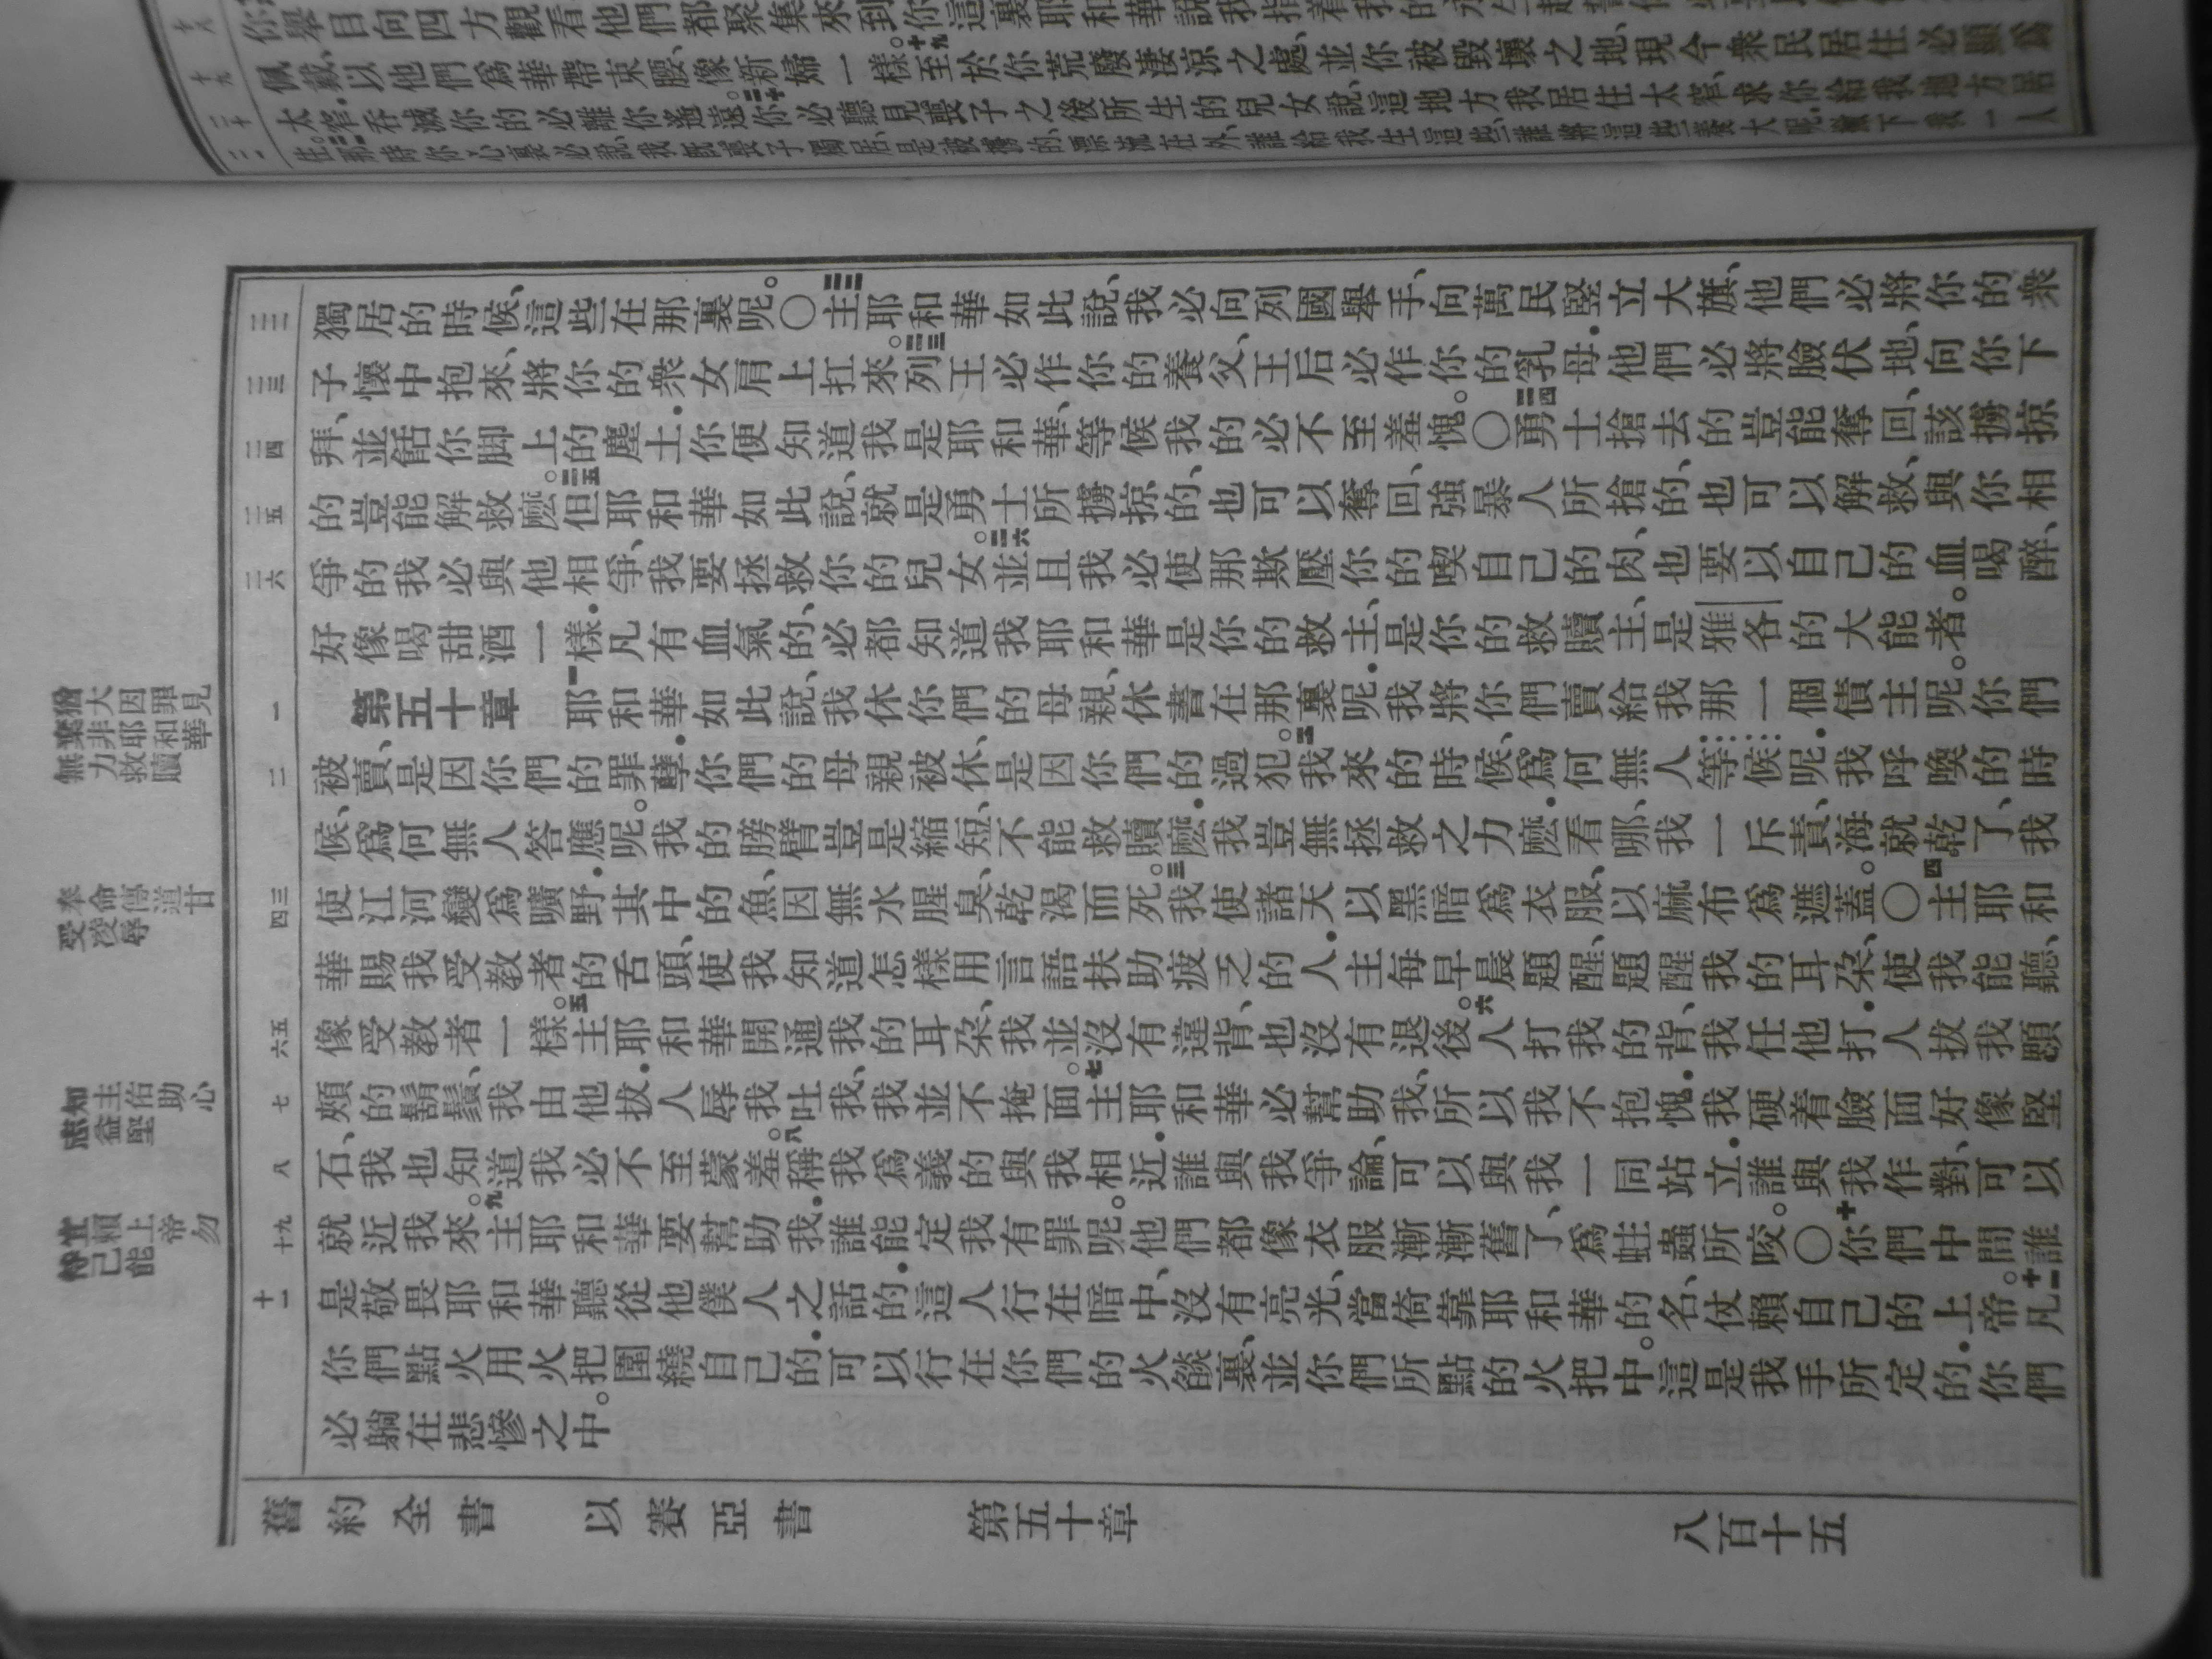 佩戴、以他們爲華帶束腰、像新婦一樣。十九至於你荒廢淒涼之處、並你被毀壞之地、現今衆民居住必顯爲
太窄．吞滅你的必離你遙遠。二十你必聽見喪子之後所生的兒女說、這地方我居住太窄、求你給我地方居
獨居的時候、這些在那裏呢。〇二二主耶和華如此說、我必向列國舉手、向萬民豎立大旗、他們必將你的衆
子懷中抱來、將你的衆女肩上扛來。二三列王必作你的養父、王后必作你的乳母．他們必將臉伏地、向你下
拜、並餂你脚上的塵土．你便知道我是耶和華、等候我的必不至羞愧。〇二四勇士搶去的豈能奪回、該擄掠
的豈能解救麽。二五但耶和華如此說、就是勇士所擄掠的、也可以奪回、強暴人所搶的、也可以解救、與你相
爭的我必與他相爭、我要拯救你的兒女。二六並且我必使那欺壓你的喫自己的肉、也要以自己的血喝醉、
好像喝甜酒一樣．凡有血氣的、必都知道我耶和華是你的救主、是你的救贖主、是雅各的大能者。
第五十章 一耶和華如此說、我休你們的母親、休書在那裏呢．我將你們賣給我那一個債主呢。你們
被賣、是因你們的罪孽．你們的母親被休、是因你們的過犯。二我來的時候、爲何無人等候呢．我呼喚的時
候、爲何無人答應呢。我的膀臂豈是縮短、不能救贖麽．我豈無拯救之力麽．看哪、我一斥責、海就乾了、我
使江河變爲曠野．其中的魚、因無水腥臭、乾渴而死。三我使諸天以黑暗爲衣服、以麻布爲遮蓋。〇四主耶和
華賜我受教者的舌頭、使我知道怎樣用言語扶助疲乏的人．主每早晨題醒、題醒我的耳朶、使我能聽、
像受教者一樣。五主耶和華開通我的耳朶、我並沒有違背、也沒有退後。六人打我的背、我任他打．人拔我顋
頰的鬍鬚、我由他拔．人辱我吐我、我並不掩面。七主耶和華必幫助我、所以我不抱愧．我硬着臉面好像堅
石、我也知道我必不至蒙羞。八稱我爲義的與我相近．誰與我爭論、可以與我一同站立．誰與我作對、可以
就近我來。九主耶和華要幫助我．誰能定我有罪呢。他們都像衣服漸漸舊了、爲蛀蟲所咬。〇十你們中間誰
是敬畏耶和華聽從他僕人之話的．這人行在暗中、沒有亮光、當倚靠耶和華的名、仗賴自己的上帝。十一凡
你們點火用火把圍繞自己的．可以行在你們的火燄裏、並你們所點的火把中。這是我手所定的．你們
必躺在悲慘之中。
二二
二三
二四
二五
二六
一
二
四三
六五
七
八
十九
十一
見罪因大
華和耶非
贖救力無
甘道傳命奉
辱凌受
心助佑主知
堅益
勿帝上賴宜
能己
舊約全書 以賽亞書 第五十章 八百十五